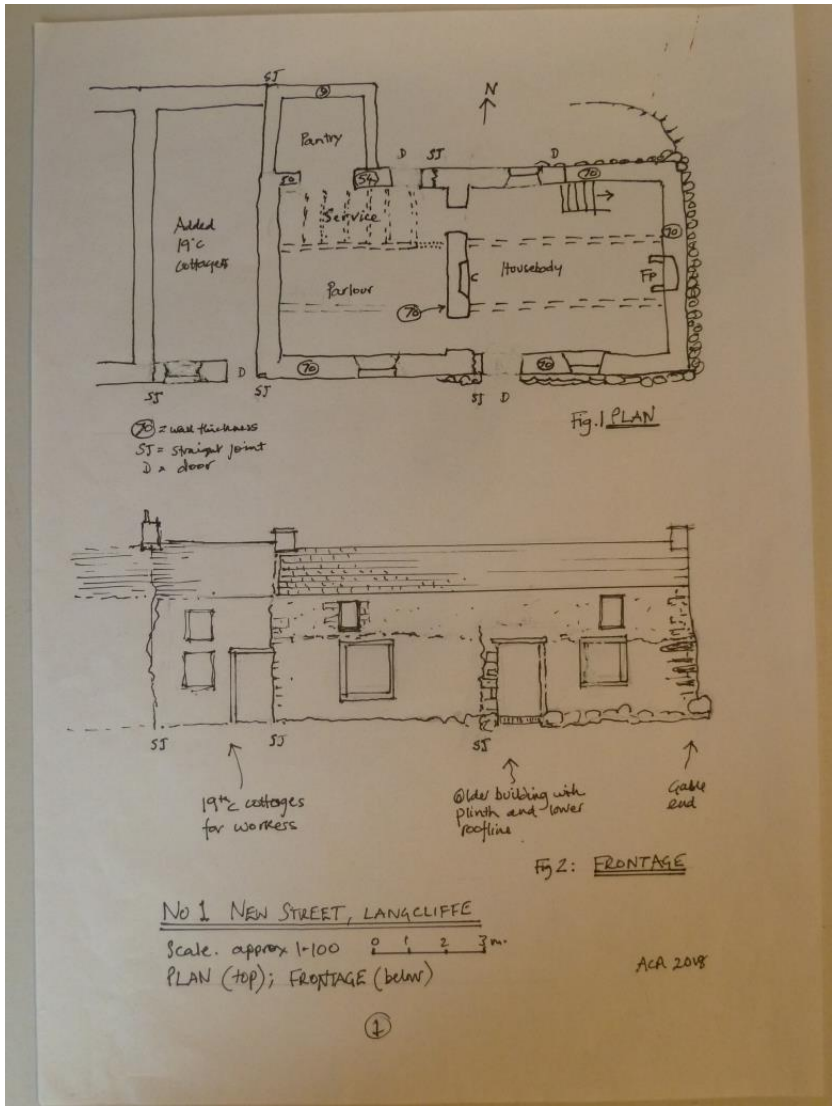 SJ
N
Pantry
D
SJ
D
50
54
70
Service
70
Added
19th C
cottages
Housebody
Parlour
C
FP
70
70
70
D
SJ
SJ
SJ
D
Fig.1 PLAN
70 = wall thickness
SJ = straight joint
D = door
SJ
SJ
SJ
19th C cottages
for workers
Older building with
plinth and lower
roofline
Gable
end
Fig 2: FRONTAGE
No 1 NEW STREET, LANGCLIFFE
Scale. approx 1-100 0 1 2 3m.
PLAN (top); FRONTAGE (below)
ACA 2018
1